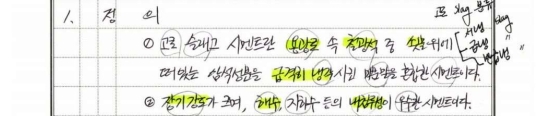 1. 정 의
고로 slag 분류
서냉 slag
급냉 〃
반급냉 〃
① 고로 슬래그 시멘트란 용광로 속 철광석 중 쇳물위에
떠있는 암석성분을 급격히 냉각시킨 미분말을 혼합한 시멘트이다.
② 장기강도가 크며, 해수, 지하수 등의 내침투성이 우수한 시멘트이다.